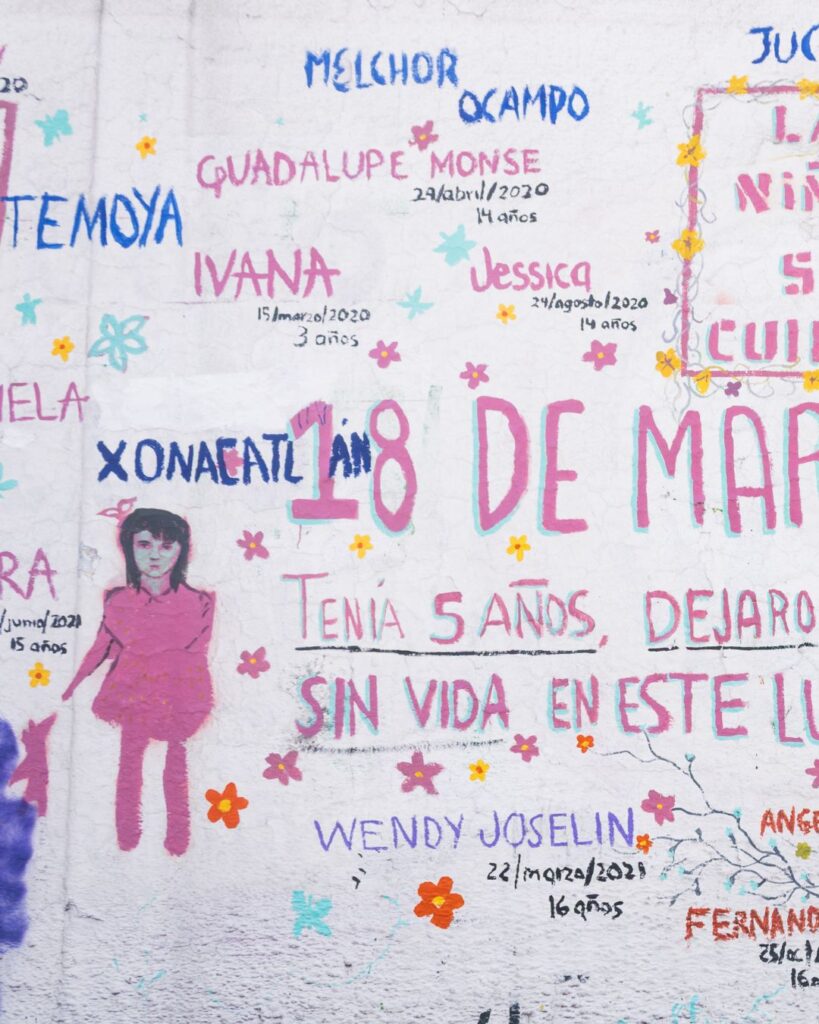 MELCHOR
OCAMPO
JUC
20
GUADALUPE MONSE
29/abril/2020
14 años
LA
NIÑ
S
CUI
TEMOYA
IVANA
15/marzo/2020
3 años
Jessica
24/agosto/2020
14 años
IELA
XONACATLÁN
18 DE MAR
RA
/junio/2021
15 años
TENÍA 5 AÑOS, DEJARO
SIN VIDA EN ESTE LU
WENDY JOSELIN
22/marzo/2021
16 años
ANGE
FERNAND
25/oct/
16a